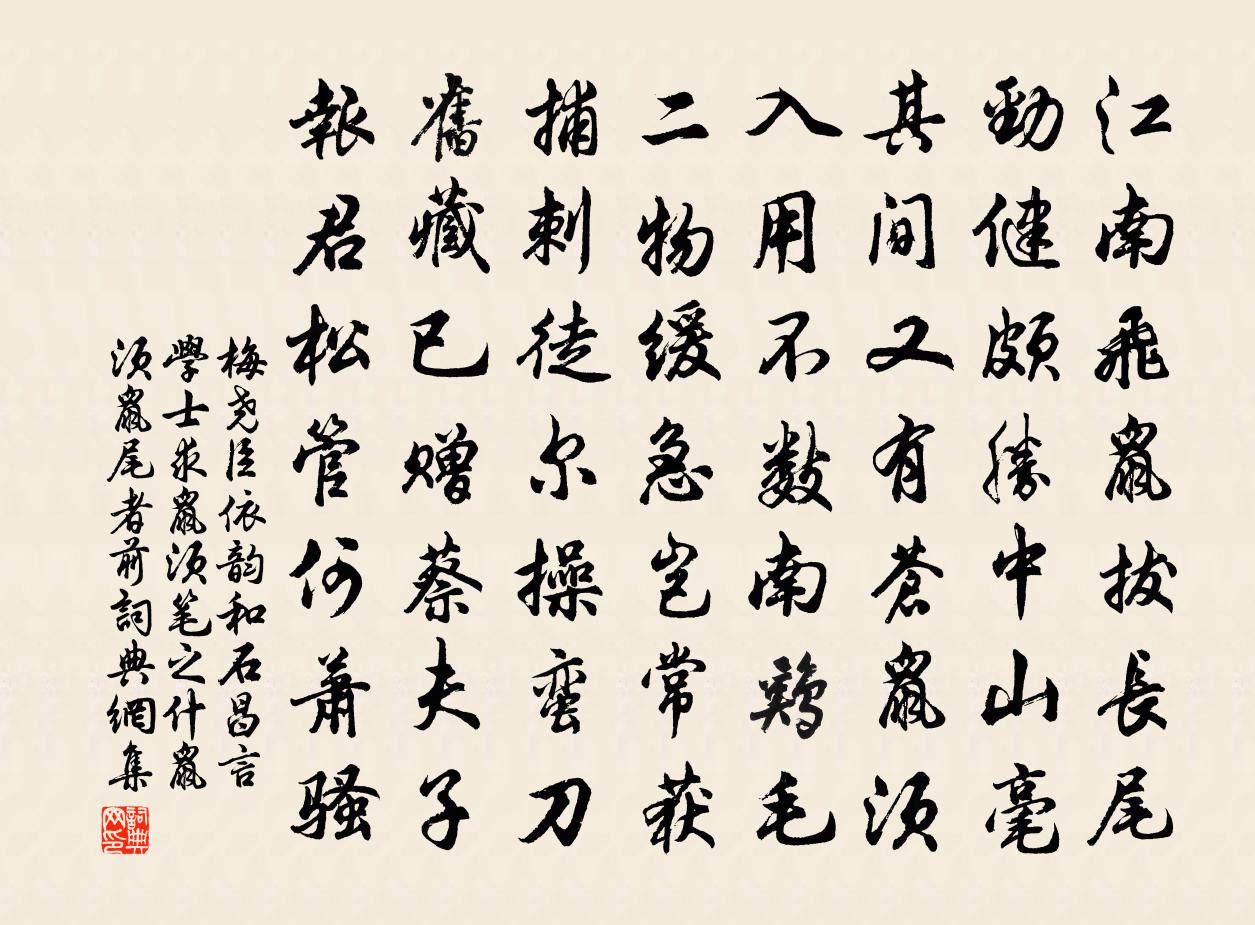 江南飛鼠拔長尾
勁健頗勝中山毫
其间又有蒼鼠須
入用不數南鷄毛
二物缓急豈常获
捕刺徒尔操蛮刀
舊藏已赠蔡夫子
報君松管何萧骚
梅尧臣依韵和石昌言
學士求鼠須笔之什鼠
須鼠尾者前詞典網集
詞典網印